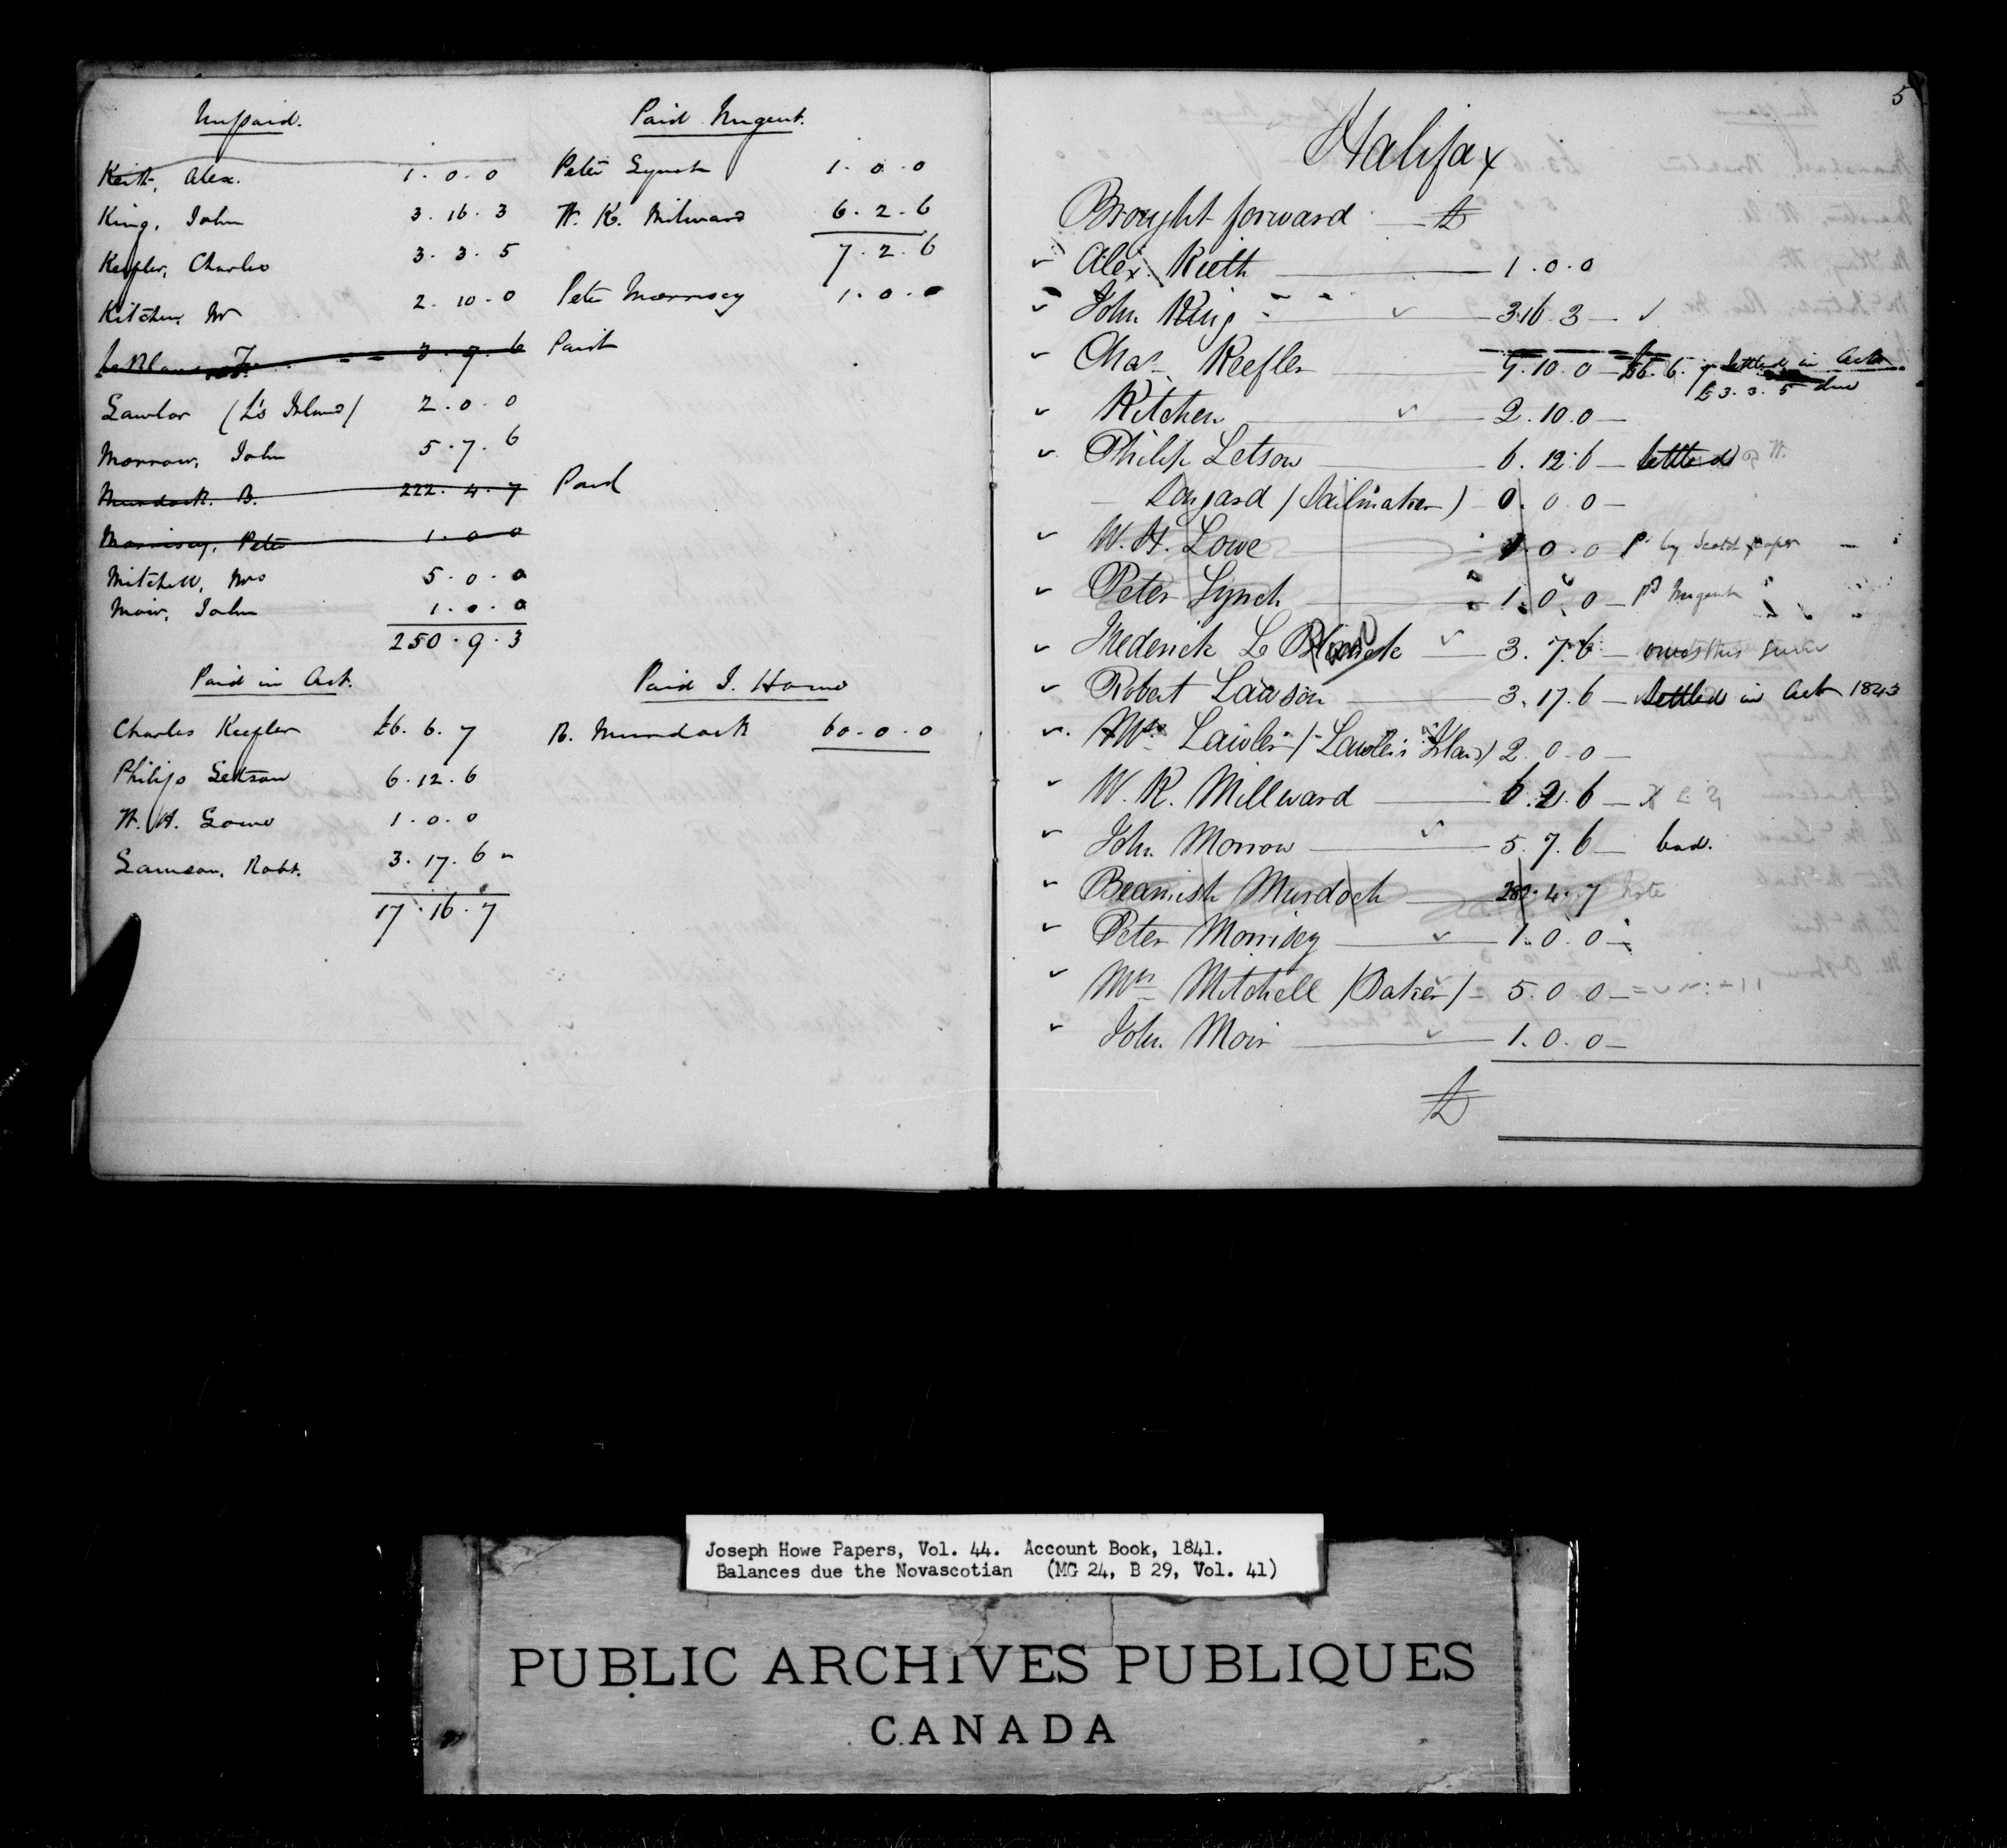 Unpaid.
Keith, Alex. 1. 0. 0
King, John 3. 16. 3
Keefler, Charles 3. 3. 5
Kitchen, Mr 2. 10. 0
LeBlanc F. 3. 7. 6 Paid
Lawlor (L's Island) 2. 0. 0
Morrow, John 5. 7. 6
Murdock. B. 222. 4. 7 Paid
Morrisey, Peter 1. 0. 0
Mitchell, Mrs 5. 0. 0
Moir, John 1. 0. 0
250. 9. 3
Paid Nugent.
Peter Lynch 1. 0. 0
W. K. Milward 6. 2. 6
7. 2. 6
Peter Morrisey 1. 0. 0
Paid in Act.
Charles Keefler £6. 6. 7
Philip Letson 6. 12. 6
W. H. Lowe 1. 0. 0
Lawson, Robt. 3. 17. 6
17. 16. 7
Paid J. Howe
B. Murdock 60. 0. 0
5
Halifax
Brought forward £
Alex. Kieth 1. 0. 0
John King 3. 16. 3
Chas Keefler 9. 10. 0 £6. 6. 7 settled in Act
£3. 3. 5 due
Kitchen 2. 10. 0
Philip Letson 6. 12. 6 settled
Longard (Sailmaker) 0. 0. 0
W. H. Lowe 1. 0. 0 Pd by Scotch paper
Peter Lynch 1. 0. 0 Pd Nugent
Frederick Le Blanc 3. 7. 6 owes this
Robert Lawson 3. 17. 6 Settled in Act 1843
Mrs Lawler (Lawler's Island) 2. 0. 0
W. K. Millward 6. 2. 6
John Morrow 5. 7. 6 bad.
Beamish Murdoch 282. 4. 7 Note
Peter Morrisey 1. 0. 0
Mrs Mitchell (Baker) 5. 0. 0
John Moir 1. 0. 0
£
Joseph Howe Papers, Vol. 44. Account Book, 1841.
Balances due the Novascotian (MG 24, B 29, Vol. 41)
PUBLIC ARCHIVES PUBLIQUES
CANADA